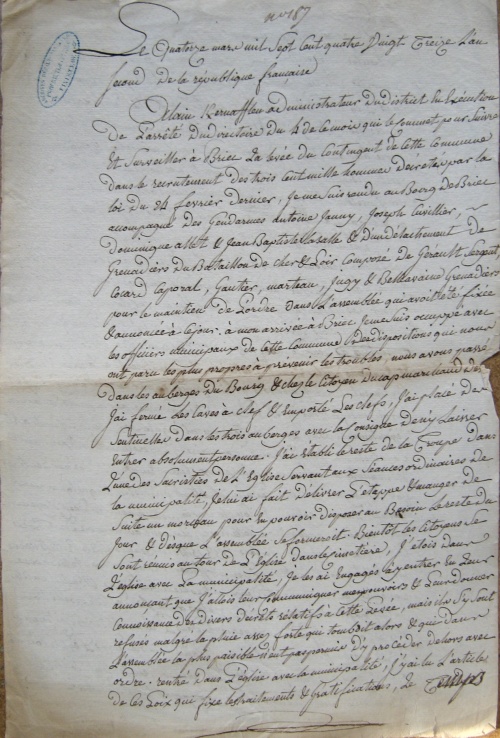 n° 187
Le Quatorze mars mil Sept Cent quatre Vingt Treize L'an
second De la république française
Alain Kernafflen administrateur Du district En Exécution
De l'arrêté Du directoire Du 4 de Ce mois qui le Commet pour Suivre
Et Surveiller à Briec La levée du Contingent de Cette Commune
dans le recrutement Des trois Cent mille hommes Décrétés par la
loi Du 24 février Dernier, Je me Suis rendu au Bourg de Briec
accompagné Des Gendarmes antoine Janny, Joseph Cuvillier,
Dominique & Jean Baptiste La salle & D'un détachement de
Grenadiers Du Bataillon de Cher & Loir Composé De Gérault Sergent,
Cocard Caporal, Gautier, marteau, Jugy & Belavaine Grenadiers
pour le maintien de L'ordre Dans L'assemblée qui avoit été fixée
& annoncée à Ce jour. à mon arrivée à Briec Je me suis occupé avec
les officiers municipaux de Cette Commune Des dispositions qui nous
ont paru les plus propres à prévenir les troubles. nous avons passé
Dans les auberges Du Bourg & chez le Citoyen marchand
J'ai fermé Les Caves à Clef & Emporté Les Clefs, J'ai placé des
Sentinelles Dans les trois auberges avec la Consigne De n'y Laisser
Entrer absolument personne. J'ai Etabli le reste de la Troupe Dans
L'une des Sacristies De L'Eglise Servant aux Séances ordinaires de
la municipalité, & lui ai fait Délivrer L'étappe & manger de
Suite un morceau pour En pouvoir disposer au Besoin le reste du
Jour & dès que L'assemblée Se formeroit. Bientôt les Citoyens Se
Sont réunis autour De L'Eglise Dans le Cimetiere, J'étois Dans
L'Eglise avec La municipalité, Je les ai Engagés à y entrer En Leur
annonçant que J'allois leur Communiquer mes pouvoirs & Leur donner
Connoissance Des Divers Décrets rélatifs à Cette Levée, mais ils S'y Sont
refusés malgré la pluie assez forte qui tomboit alors & qui Dans
L'assemblée la plus paisible n'eut pas permis D'y procéder Dehors avec
ordre. rentré Dans L'Eglise avec la municipalité, J'y ai lu L'article
De les Loix qui fixe les traitements & Gratifications, Le